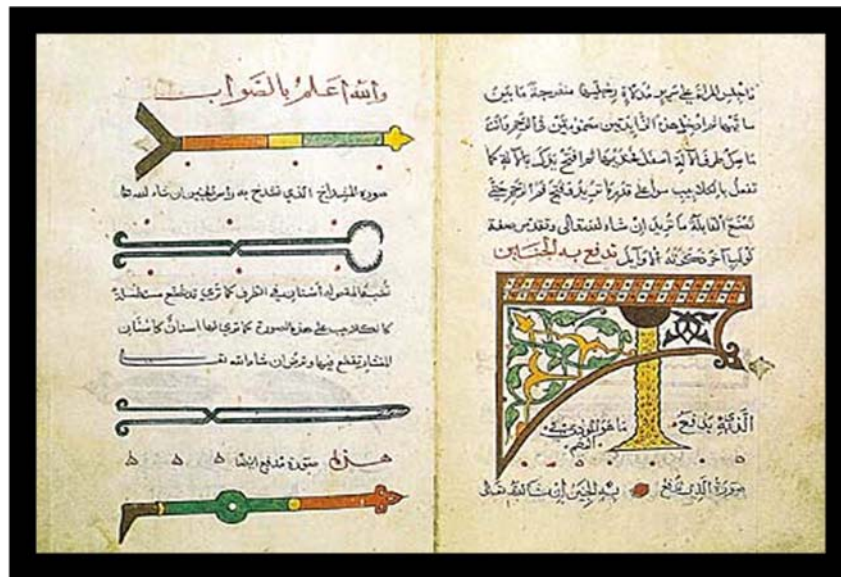 فاجلس المراة على سرير مدلاة رجليها منفرجة ما بين
ساقيها ثم ادخل هذه الزائدتين مضمومتين في الفرج وانت
ماسك طرف الالة اسفل ثم افتح يدك بالالة كما
تفعل بالكلاليب سوا على قدر ما تريد فتح فم الرحم حتى
تصنع القابلة ما تريد ان شاء الله تعالى صفة
لولب آخر ذكرته الاوايل تدفع به الجنين
يدفع ما هو
الفم
صورة الذي تدفع به الجنين ان شا الله تعالى
والله اعلم بالصواب
صورة المشداخ الذي تشدخ به راس الجنين ان شاء الله تعا
تشبه المقص له اسنان في الطرف كما ترى وقد تصنع مستطيلة
كالكلاليب على هذه الصورة كما ترى لها اسنان كاسنان
المنشار تقطع بها وترض ان شاء الله تعـ
هذه صورة مدفع ايضا